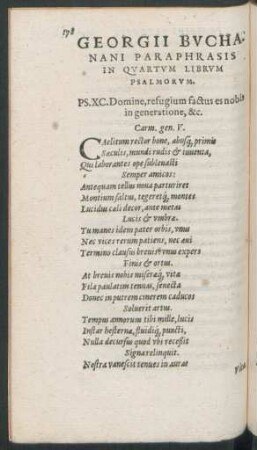 178
GEORGII BVCHA-
NANI PARAPHRASIS
IN QVARTVM LIBRVM
PSALMORVM.
PS. XC. Domine, refugium factus es nobis
in generatione, &c.
Carm. gen. V.
CAelitum rector bone, absq, primis
Sæculis, mundi rudis & iuuenta,
Qui laborantes ope subleuasti
Semper amicos:
Antequam tellus noua parturiret
Montium saltus, tegeretq, montes
Lucidum cæli decor, ante metas
Lucis & vmbræ.
Tu manes idem pater orbis, vnus
Nec vices rerum patiens, nec æui
Termino clausus breui & vnus expers
Finis & ortus.
At breuis nobis miseræq, vitæ
Fila paulatim tenuas, senecta
Donec in putrem cinerem caducos
Soluerit artus.
Tempus annorum tibi mille, lucis
Instar hesternæ, fluidiq, puncti,
Nulla decursus quod vbi recessit
Signa relinquit.
Nostra vanescit tenues in auras
Vita